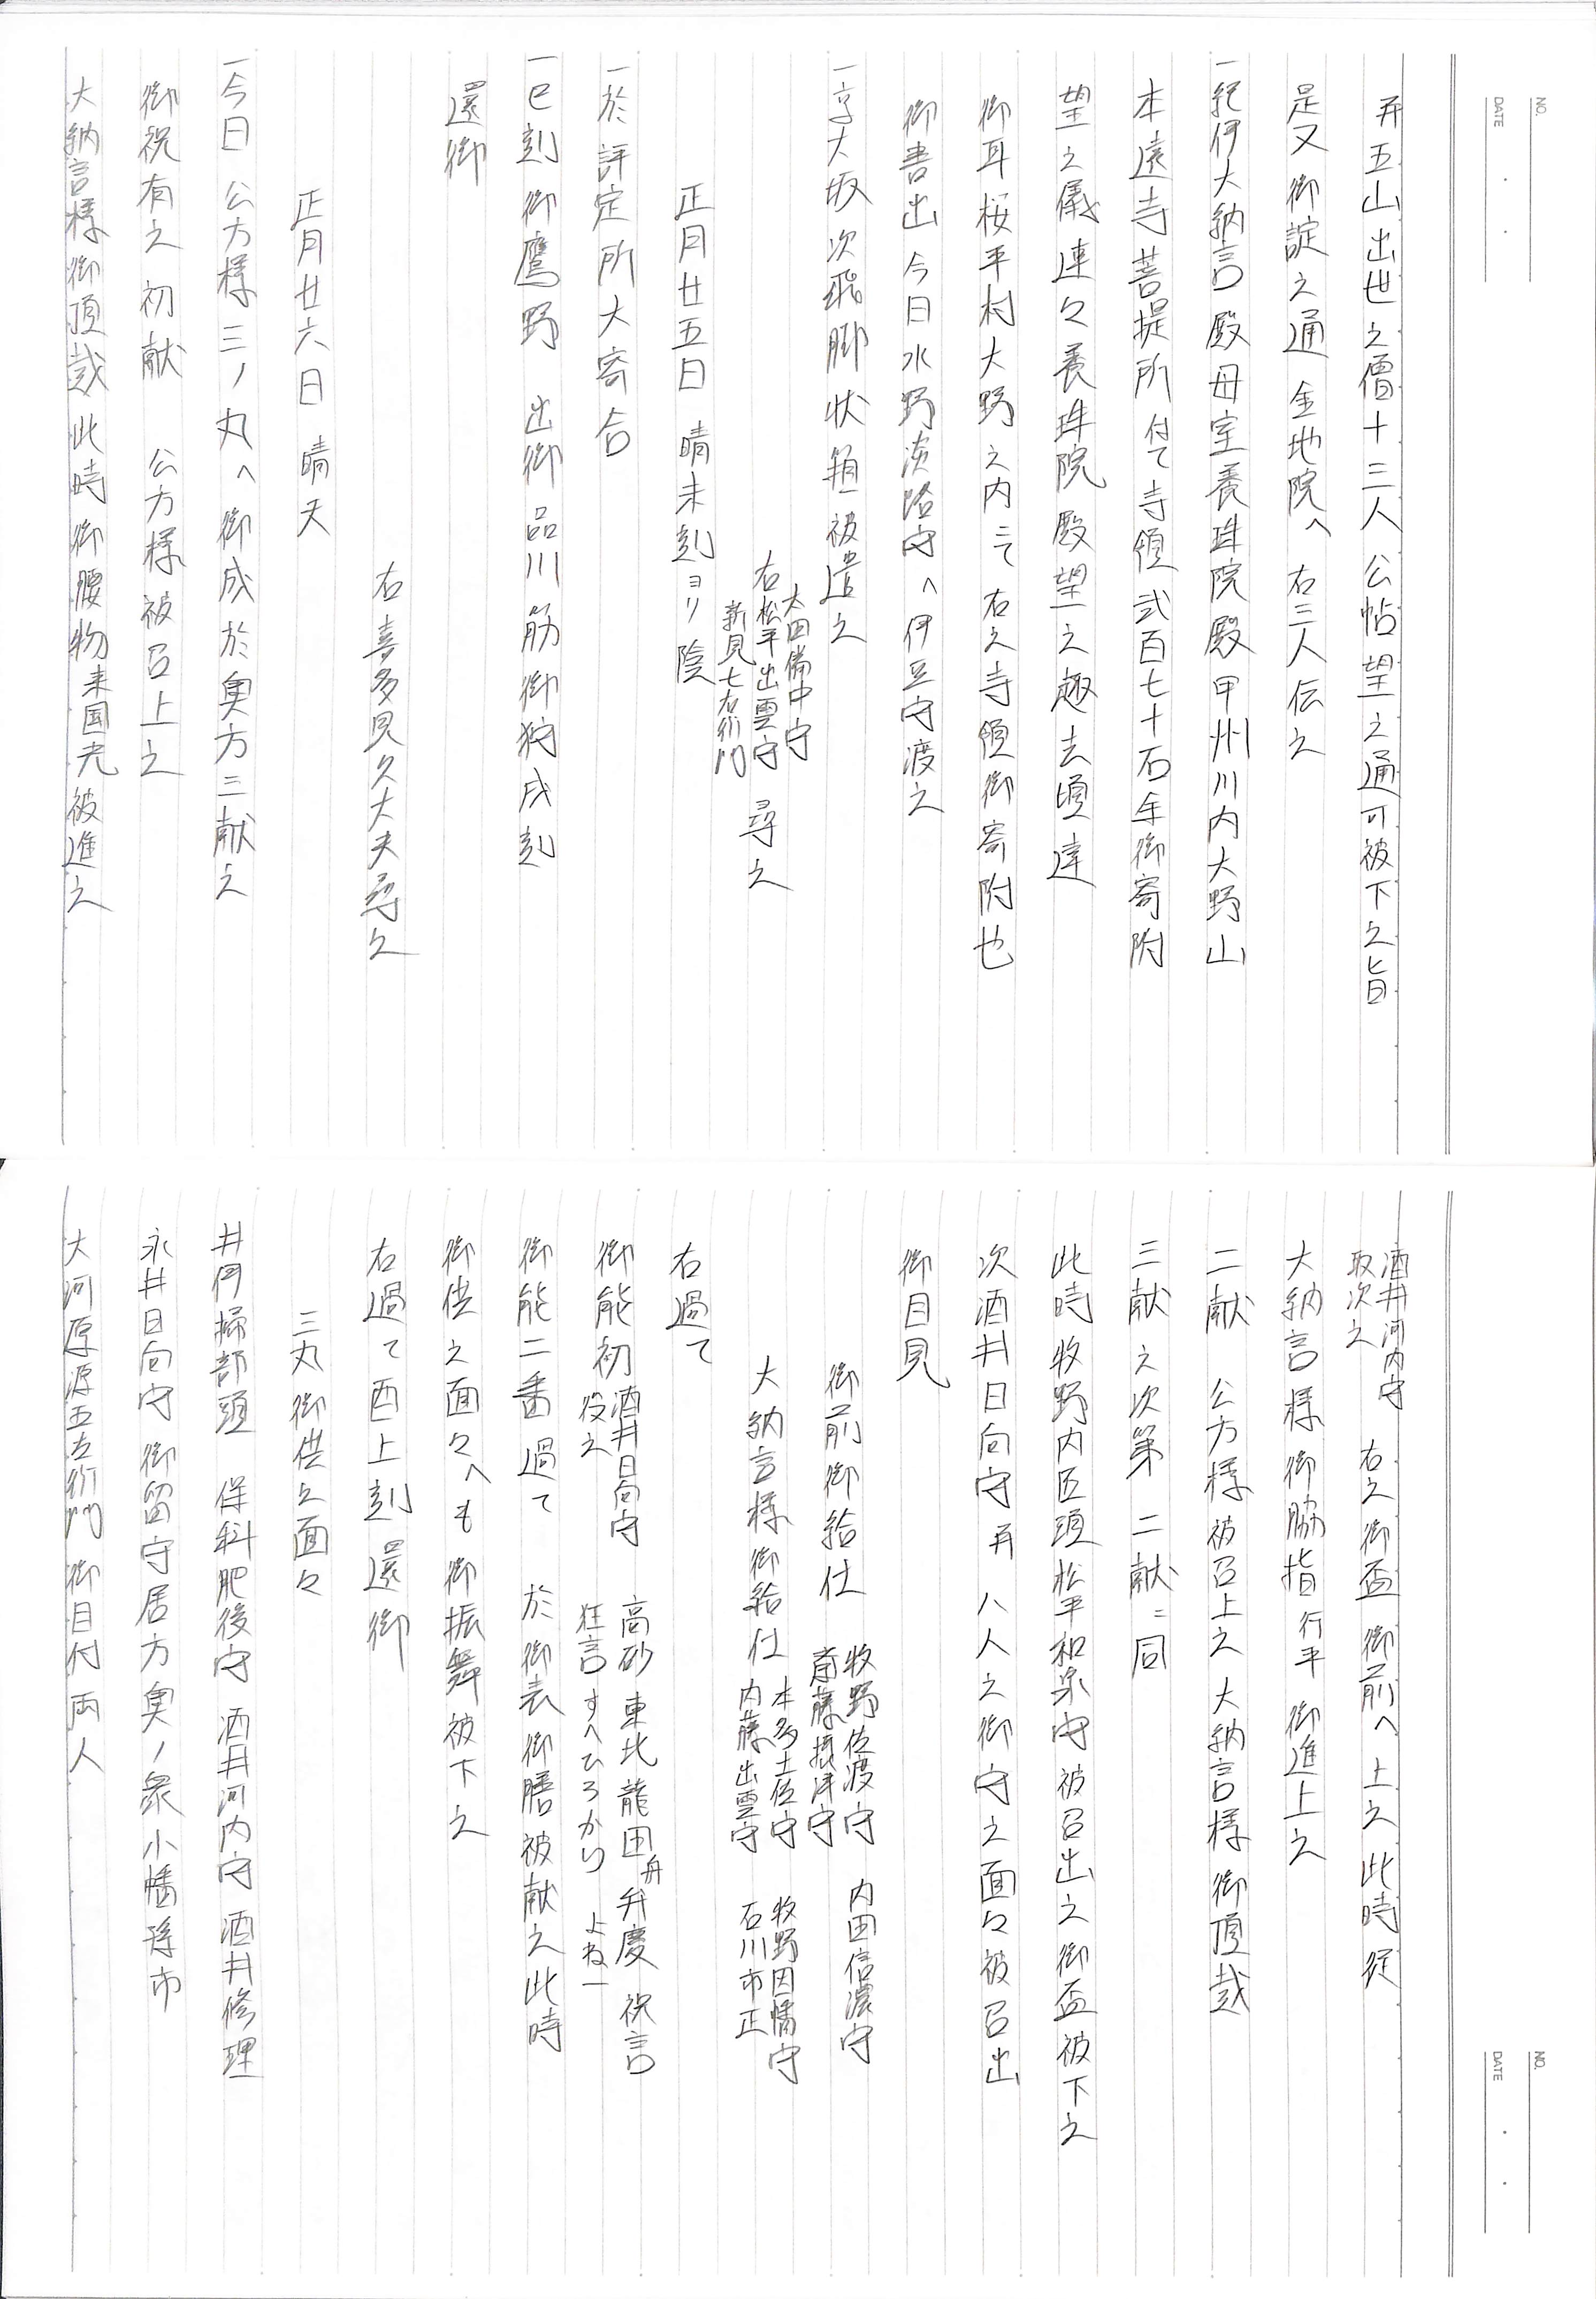 NO.
DATE
并五山出世之僧十三人公帖望之通可被下之旨
是又御諚之通金地院へ右三人伝之
一紀伊大納言殿母室養珠院殿甲州川内大野山
本遠寺菩提所付て寺領弐百七十石余御寄附
望之儀連々養珠院殿望之趣去頃達
御耳桜平村大野之内ニて右之寺領御寄附也
御書出今日水野淡路守へ伊豆守渡之
一京大坂次飛脚状箱一被遣之
太田備中守
右松平出雲守 尋之
新見七右衛門
正月廿五日 晴未刻ヨリ陰
一於評定所大寄合
一巳刻御鷹野 出御品川筋御狩戌刻
還御
右喜多見久大夫尋之
正月廿六日 晴天
一今日 公方様三ノ丸へ御成於奥方三献之
御祝有之初献 公方様被召上之
大納言様御頂戴此時御腰物来国光被進之
NO.
DATE
酒井河内守
取次之 右之御盃 御前へ上之此時従
大納言様御脇指行平御進上之
二献 公方様被召上之大納言様御頂戴
三献之次第二献ニ同
此時牧野内匠頭松平和泉守被召出之御盃被下之
次酒井日向守再八人之御守之面々被召出
御目見
御前御給仕 牧野佐渡守 内田信濃守
斎藤摂津守
大納言様御給仕 本多土佐守 牧野因幡守
内藤出雲守 石川市正
右過て
御能初 酒井日向守 高砂 東北 龍田 舟弁慶 祝言
役之 狂言すへひろかり よね一
御能二番過て 於御表御膳被献之此時
御供之面々へも御振舞被下之
右過て酉上刻還御
三丸御供之面々
井伊掃部頭 保科肥後守 酒井河内守 酒井修理
永井日向守御留守居方奥ノ衆小幡孫市
大河原源五左衛門御目付両人